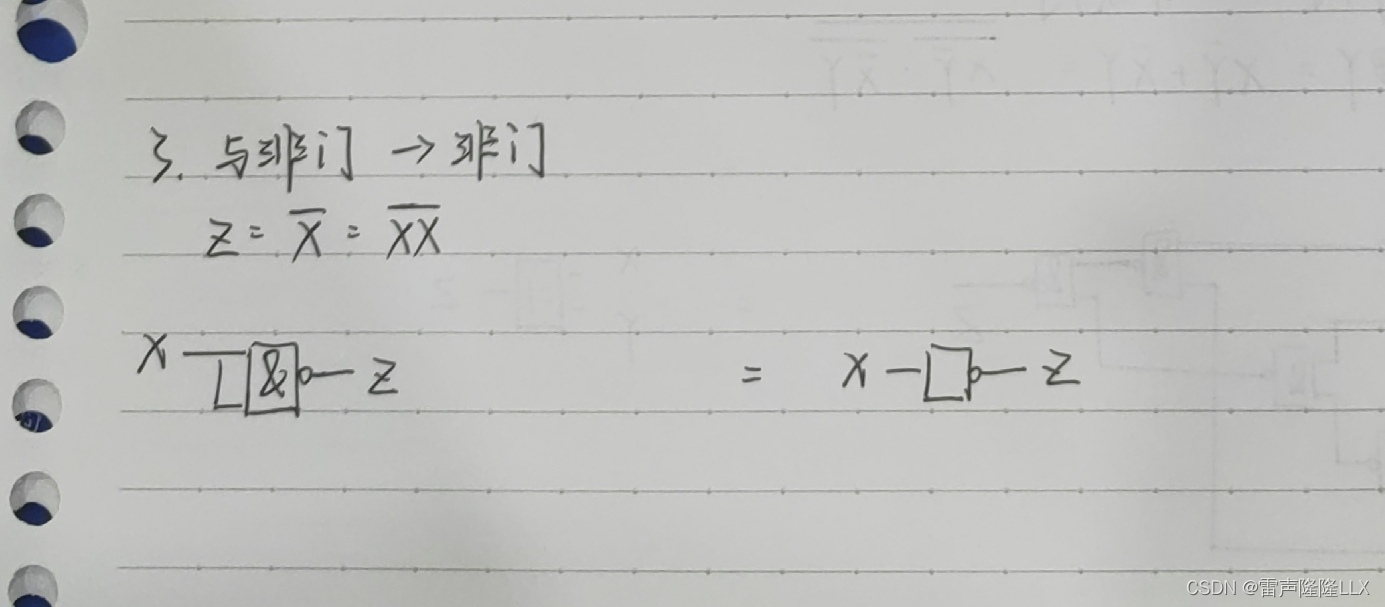 3. 与非门 → 非门
Z = X̅ = X̅X̅
X & Z = X Z
CSDN @雷声隆隆LLX